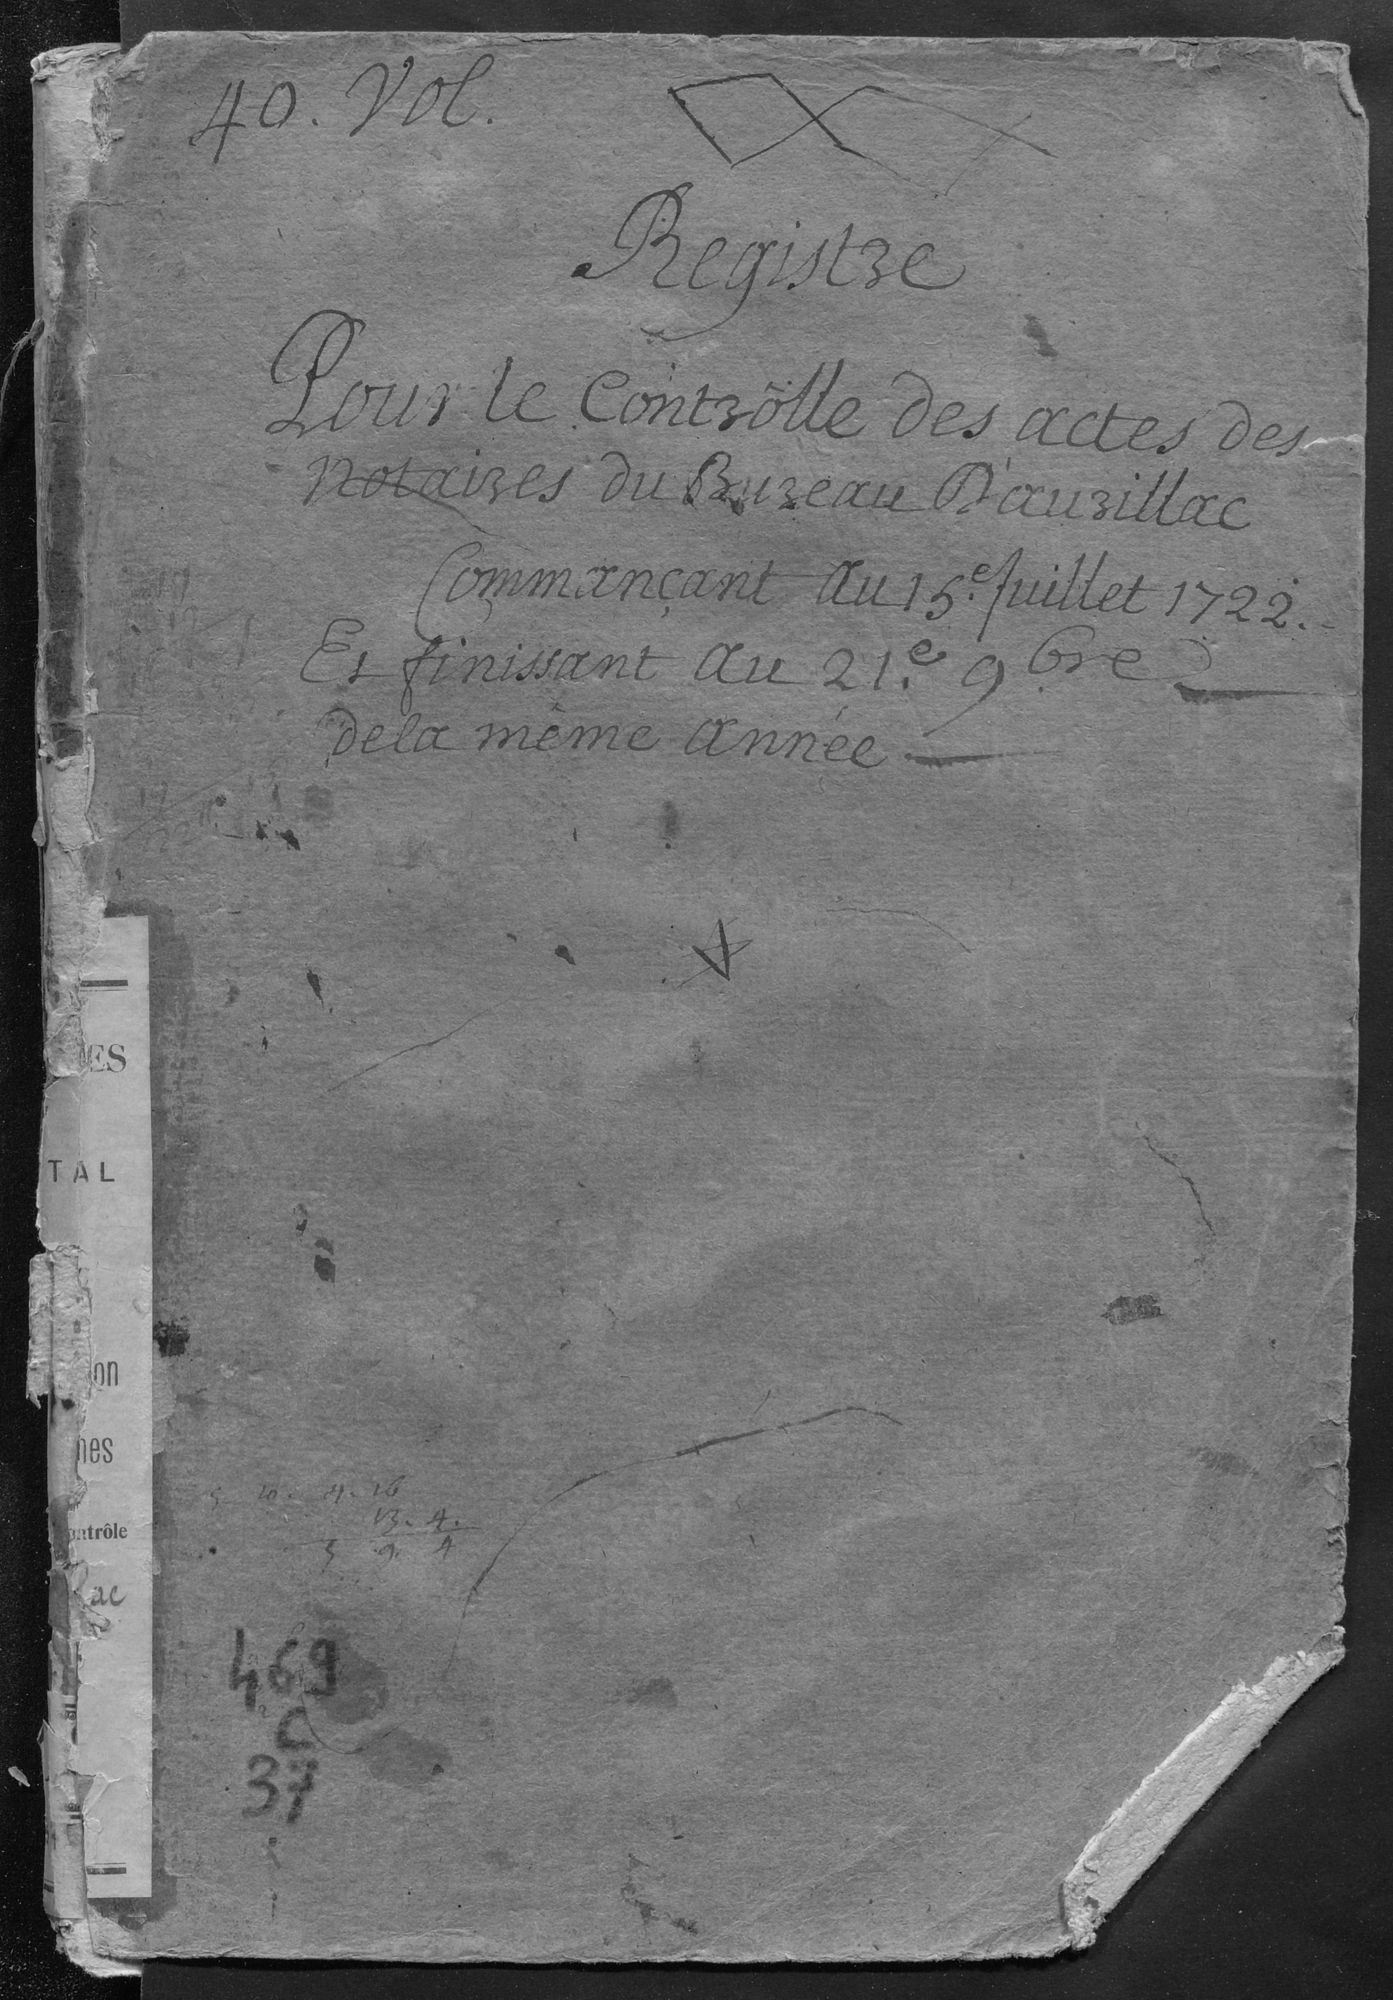 40. Vol.
Registre
Pour le Contrôlle des actes des
notaires du Bureau D'aurillac
Commançant au 15.e Juillet 1722.
Et finissant au 21.e 9bre
de la même année
ES
TAL
on
nes
ontrôle
ac
4. 16
13. 4.
3 9. 4
469
C
37